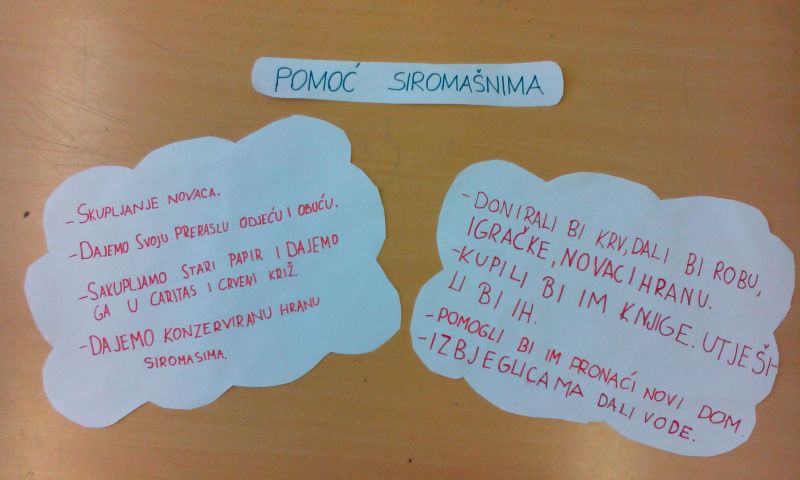 POMOĆ SIROMAŠNIMA
- SKUPLJANJE NOVACA.
- DAJEMO SVOJU PRERASLU ODJEĆU I OBUĆU.
- SAKUPLJAMO STARI PAPIR I DAJEMO
GA U CARITAS I CRVENI KRIŽ.
- DAJEMO KONZERVIRANU HRANU
SIROMASIMA.
- DONIRALI BI KRV, DALI BI ROBU,
IGRAČKE, NOVAC I HRANU.
- KUPILI BI IM KNJIGE. UTJEŠI-
LI BI IH.
- POMOGLI BI IM PRONAĆI NOVI DOM.
- IZBJEGLICAMA DALI VODE.